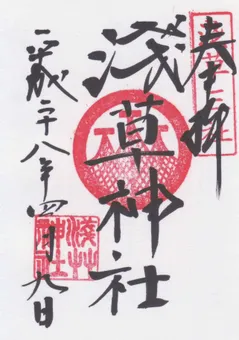 奉拝
浅草神社
平成二十八年四月九日
浅草神社